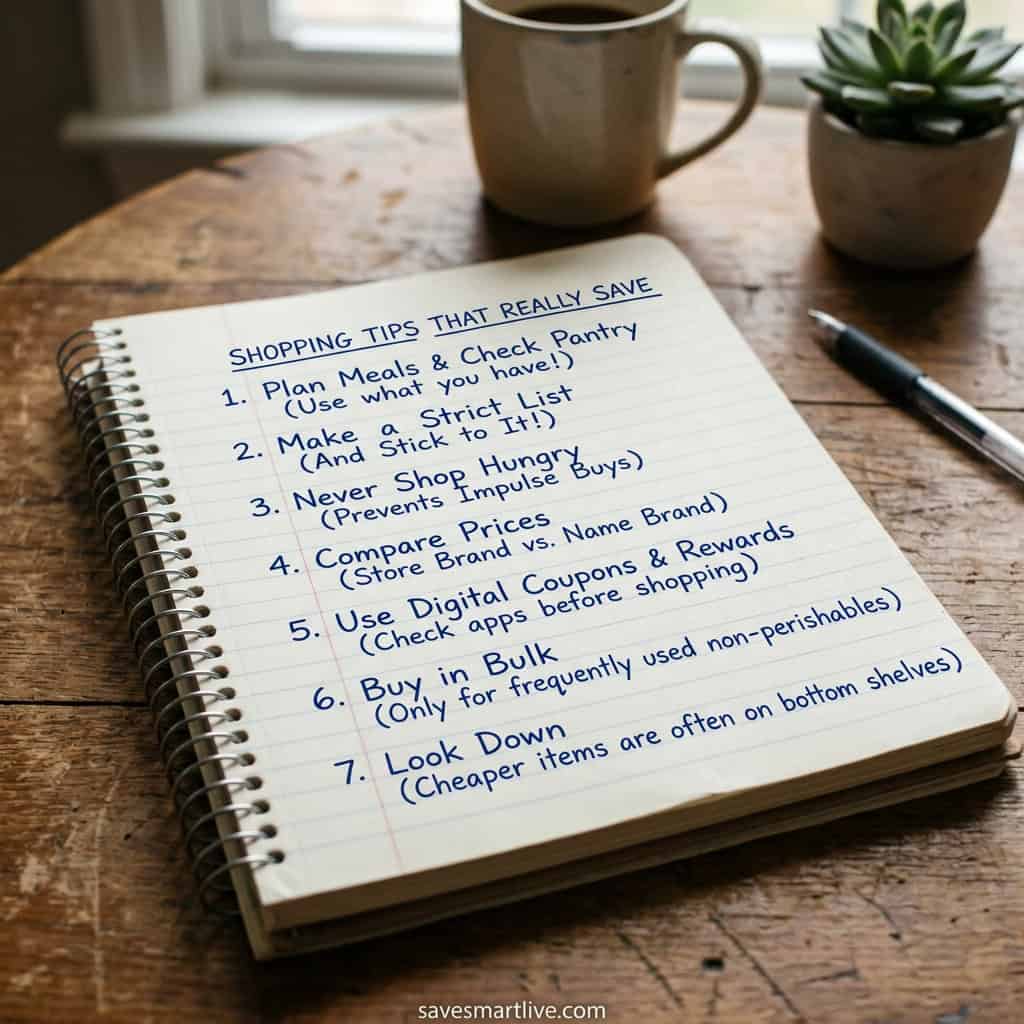 SHOPPING TIPS THAT REALLY SAVE
1. Plan Meals & Check Pantry
(Use what you have!)
2. Make a Strict List
(And Stick to It!)
3. Never Shop Hungry
(Prevents Impulse Buys)
4. Compare Prices
(Store Brand vs. Name Brand)
5. Use Digital Coupons & Rewards
(Check apps before shopping)
6. Buy in Bulk
(Only for frequently used non-perishables)
7. Look Down
(Cheaper items are often on bottom shelves)
savesmartlive.com